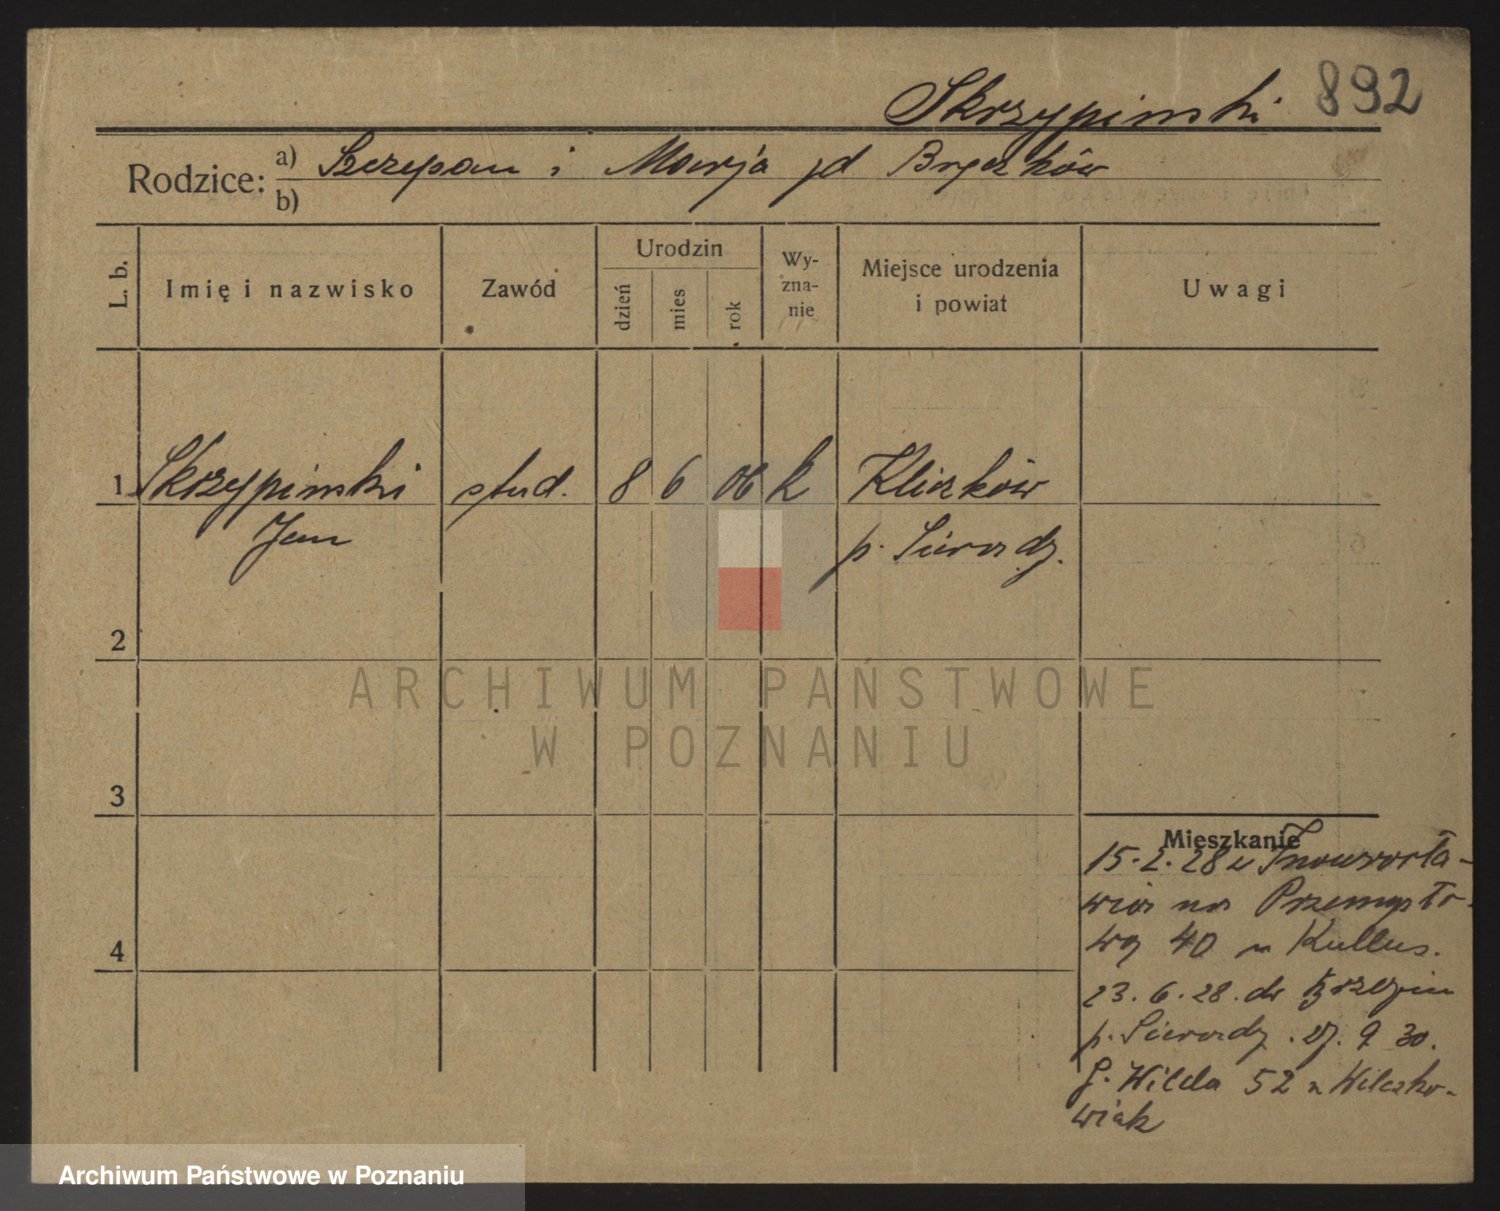 Skrzypinski 892
Rodzice: a) Szczepan i Marja
b)
L. b.
Imię i nazwisko
Zawód
Urodzin
dzień
mies
rok
Wy-
zna-
nie
Miejsce urodzenia
i powiat
Uwagi
1 Skrzypinski stud. 8 6 06 k Kliczków
Jan p. Sieradz.
2
3
4
ARCHIWUM PAŃSTWOWE
W POZNANIU
Mieszkanie
15.2.28 z Inowrocła-
wia na Przemysło-
wą 40 Kullus.
23.6.28. do
p. Sieradz. 9 30.
G. Wilda 52 Wilczko-
wiak
Archiwum Państwowe w Poznaniu